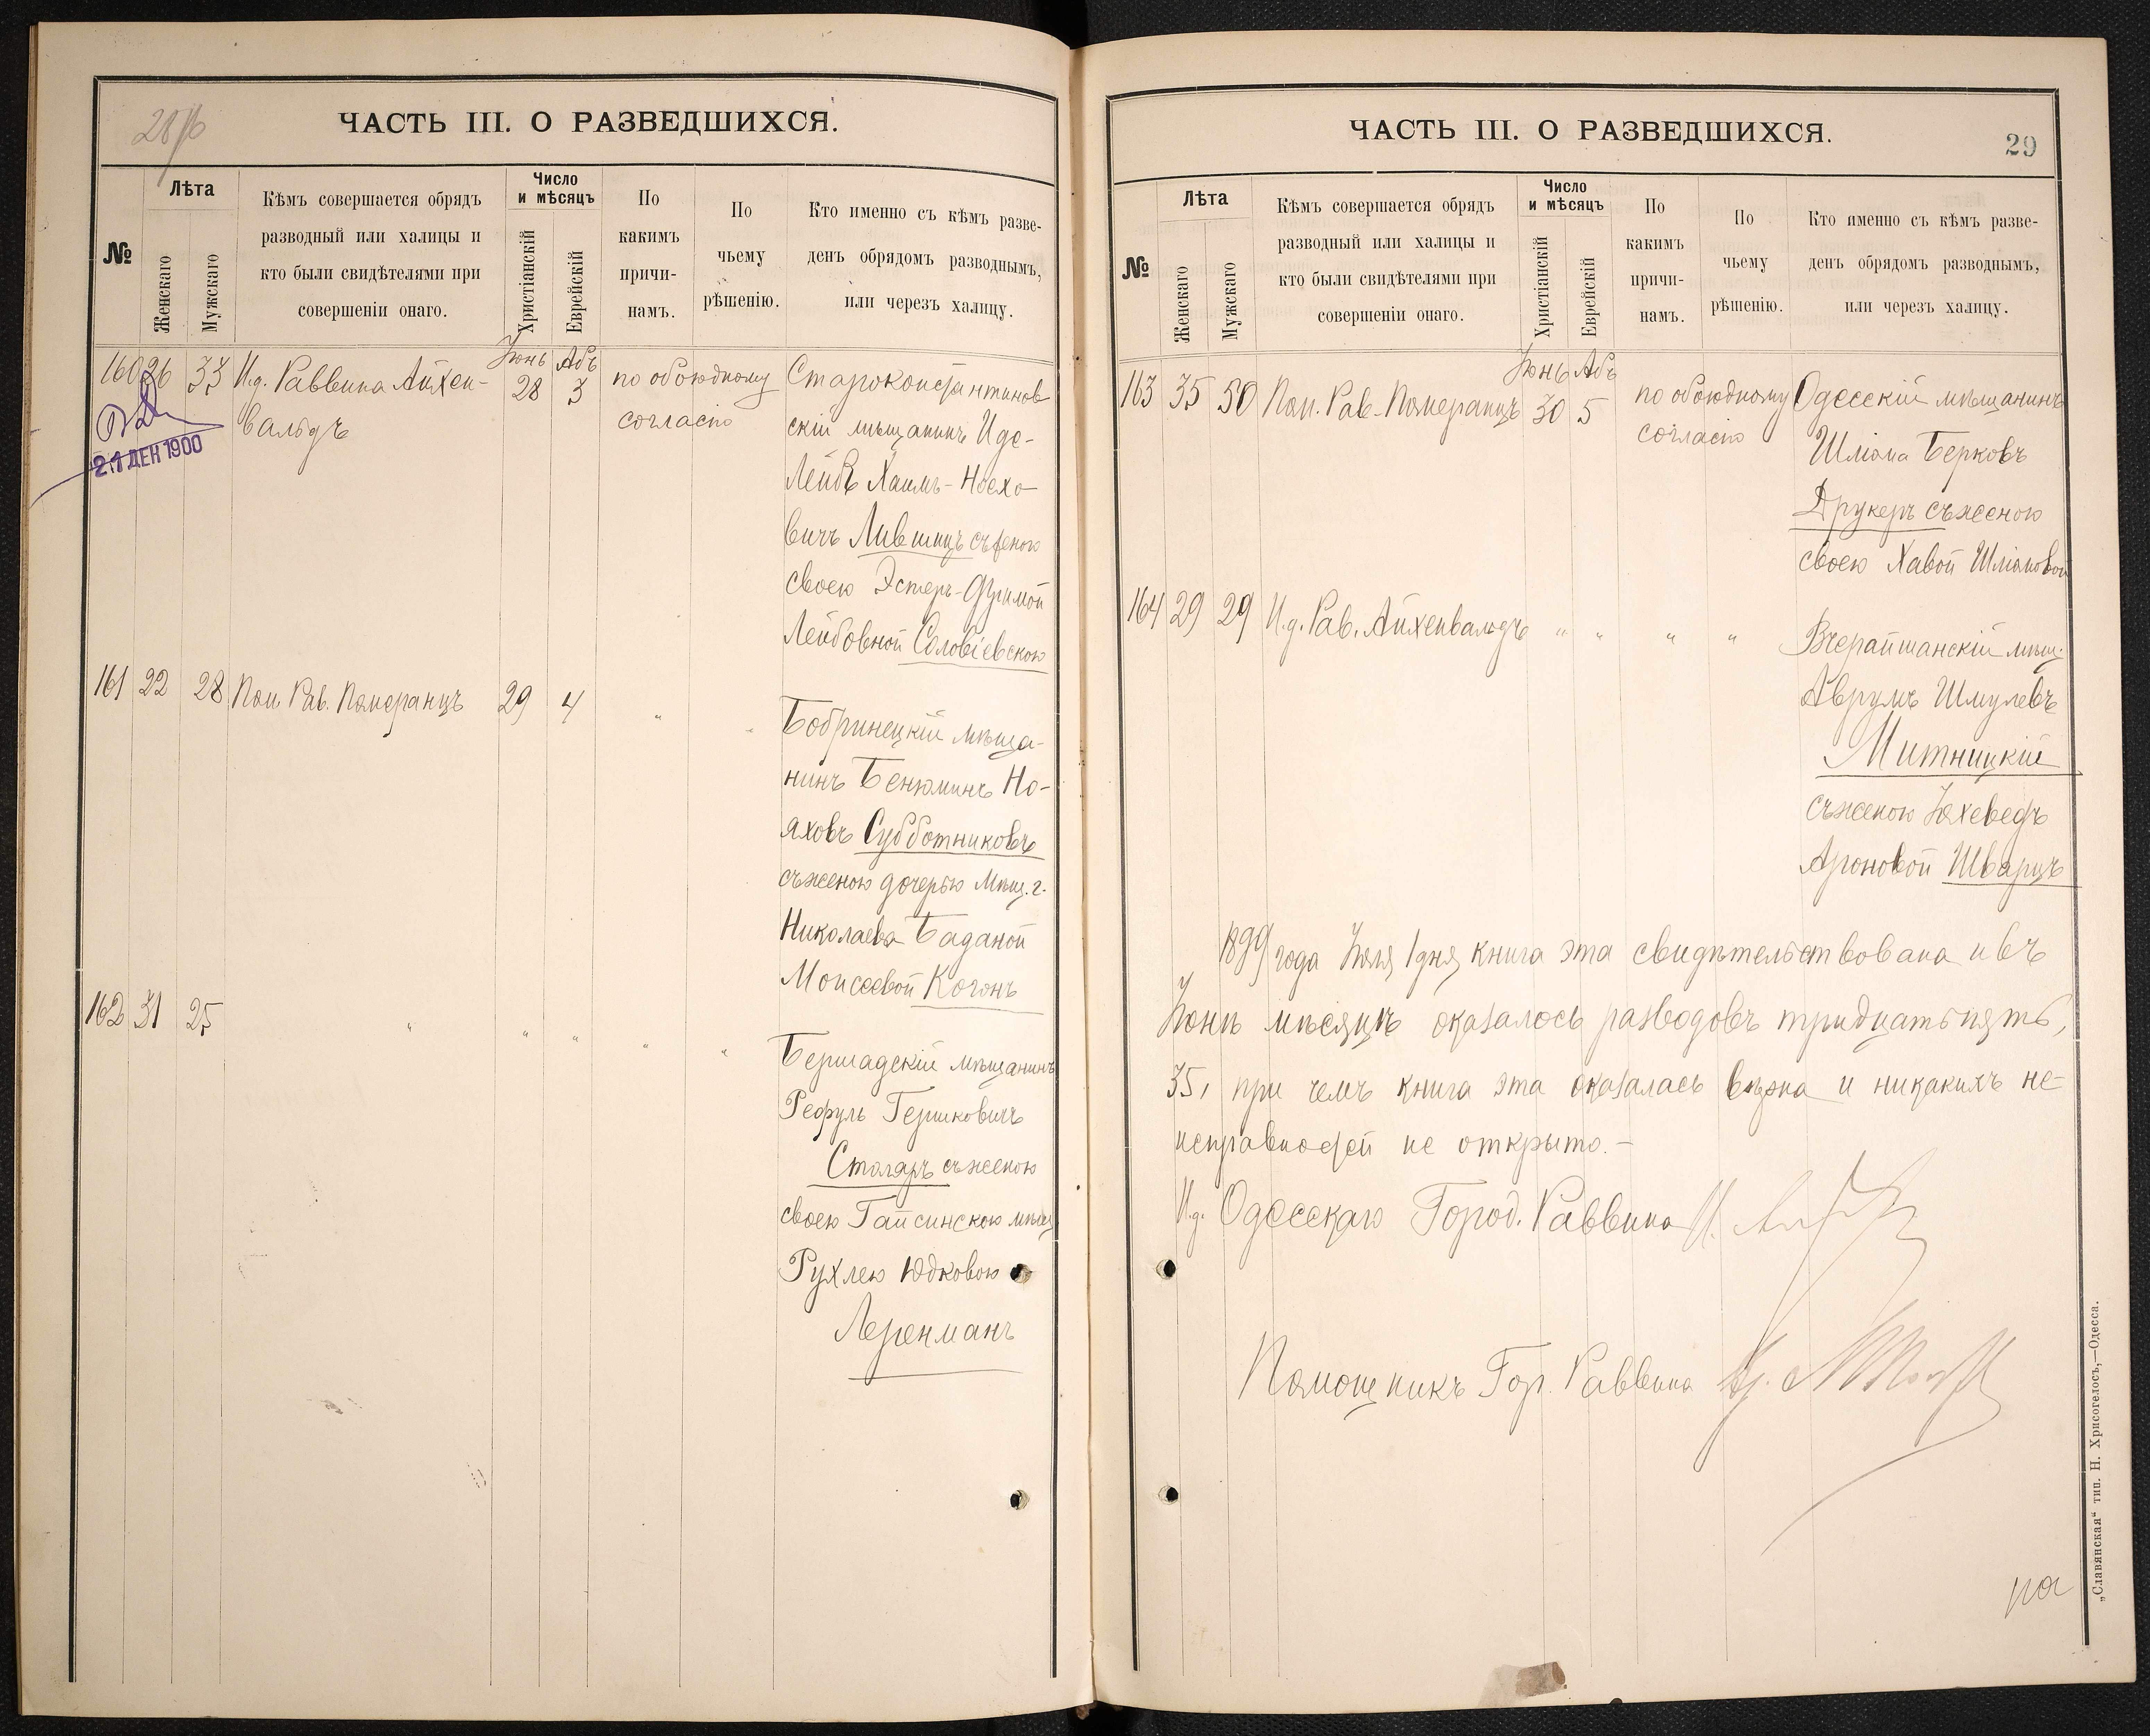 ЧАСТЬ III. О РАЗВЕДШИХСЯ.
№
Лѣта
Женскаго
Мужскаго
Кѣмъ совершается обрядъ
разводный или халицы и
кто были свидѣтелями при
совершеніи онаго.
Число
и мѣсяцъ
Христіанскій
Еврейскій
По
какимъ
причи-
намъ.
По
чьему
рѣшенію.
Кто именно съ кѣмъ разве-
денъ обрядомъ разводнымъ,
или черезъ халицу.
160 26 33 И.д. Раввина Айхен-
вальдъ
Іюнь Абъ
28 3
по обоюдному
согласію
Староконстантинов
скій мѣщанинъ Иде-
Лейбъ Хаимъ-Ноехо
вичъ Лившицъ съ женою
своею Эстеръ-Фримой
Лейбовной Соловіевскою
21 ДЕН 1900
161 22 28 Пом. Рав. Померанцъ 29 4 " "
Бобринецкій мѣща-
нинъ Бенюминъ Но-
яховъ Субботниковъ
съ женою дочерью Мѣщ. г.
Николаева Баданой
Моисеевой Когонъ
162 31 25 " " " " "
Бершадскій мѣщанинъ
Рефуль Гершковичъ
Столяръ съ женою
своею Гайсинскою мѣщ
Рухлею Юдковою
Леренманъ
ЧАСТЬ III. О РАЗВЕДШИХСЯ.
29
№
Лѣта
Женскаго
Мужскаго
Кѣмъ совершается обрядъ
разводный или халицы и
кто были свидѣтелями при
совершеніи онаго.
Число
и мѣсяцъ
Христіанскій
Еврейскій
По
какимъ
причи-
намъ.
По
чьему
рѣшенію.
Кто именно съ кѣмъ разве-
денъ обрядомъ разводнымъ,
или черезъ халицу.
163 35 50 Пом. Рав. Померанцъ
Іюнь Абъ
30 5
по обоюдному
согласію
Одесскій мѣщанинъ
Шліома Берковъ
Друкеръ съ женою
своею Хавой Шліомовой
164 29 29 И.д. Рав. Айхенвальдъ " " " "
Вчерайшанскій мѣщ.
Аврумъ Шмулевъ
Митницкій
съ женою Іохеведъ
Ароновой Шварцъ
1899 года Іюля 1 дня книга эта свидѣтельствована и въ
Іюнѣ мѣсяцѣ оказалось разводовъ тридцать пять,
35, при чемъ книга эта оказалась вѣрна и никакихъ не-
исправностей не открыто.-
И.д. Одесскаго Город. Раввина
Помощникъ Гор. Раввина
„Славянская“ тип. Н. Хрисогелосъ,—Одесса.